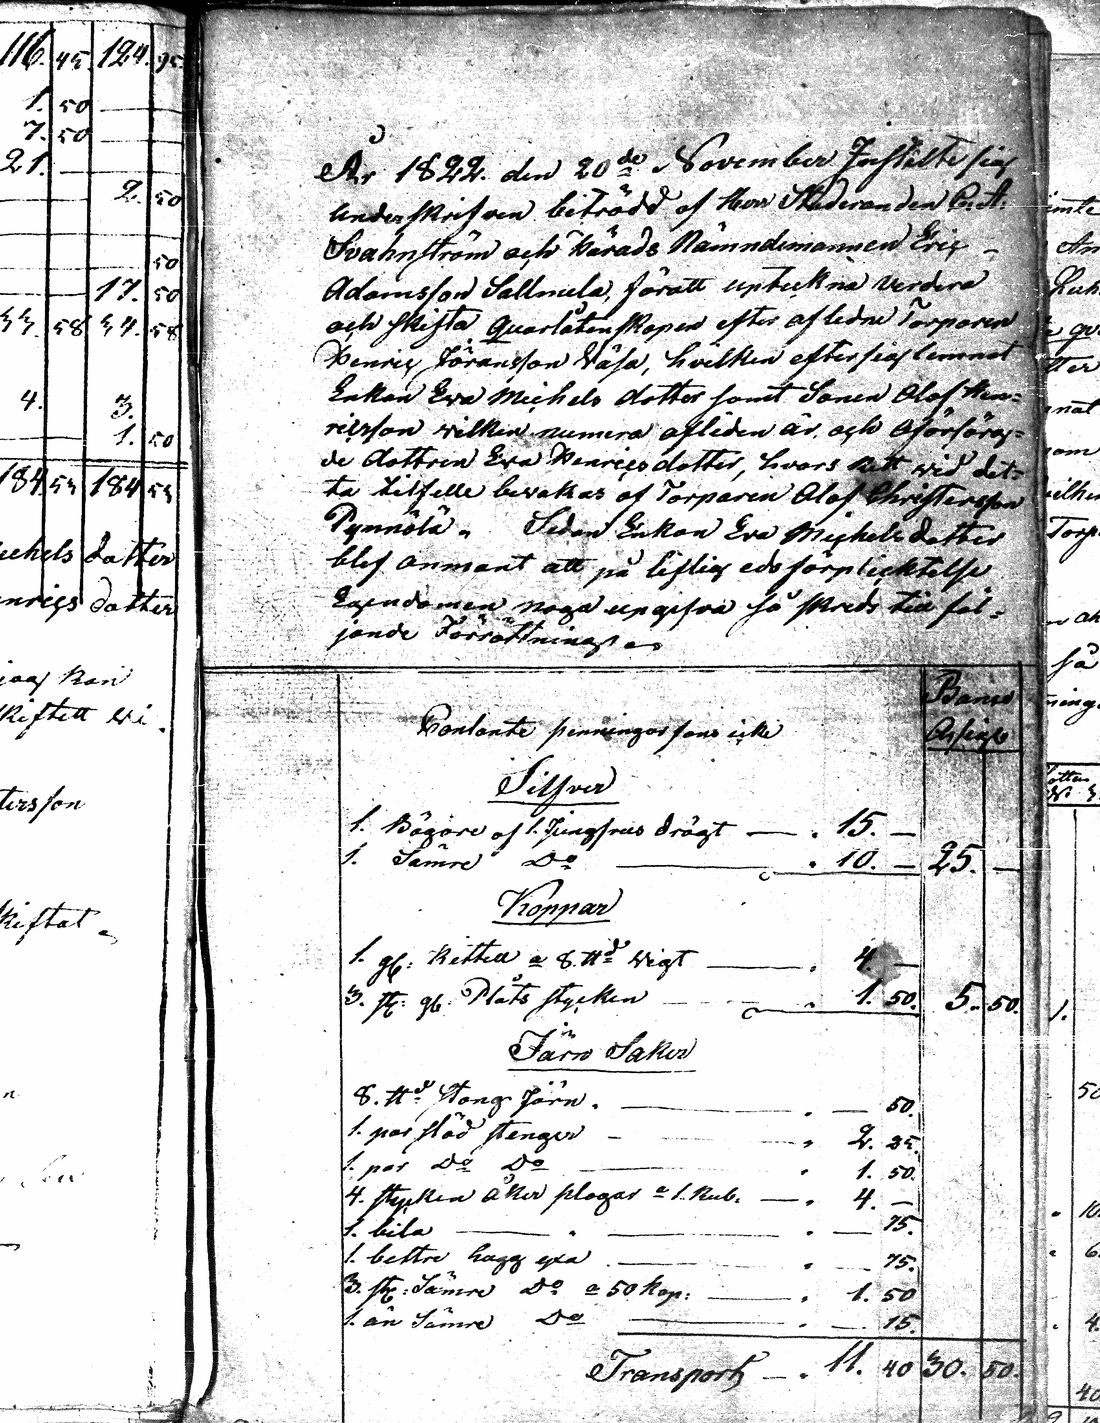 116. 45. 124. 95.
1. 50
7. 50
21.
2. 50
50
17. 50
58 54. 58
4. 3.
1. 50
184 55 184 55
Michels dotter
Henrigs dotter
jag kan
skiftett wi
ters son
skiftat
År 1822. den 20de November Instälte sig
Underskrifven biträdd af Herr Studeranden C. A.
Svahnström och Härads Nämndemannen Eric
Adamsson Sallmela, föratt uptekna verdera
och skifta quarlåtenskapen efter afledne Torparen
Henrig Jöransson Väsa, hvilken eftersig lemnat
Enkan Eva Michels dotter samt Sonen Olof Hen=
ricsson wilken numera afliden är, och Oförsörg=
de dottren Eva Henrigs dotter, hvars Rätt wid det=
ta tilfelle bewakas af Torparen Olof Christersson
Pynnölä. Sedan Enkan Eva Michels dotter
blef anmant att på liflig eds förplicktelse
Egendomen noga upgifva så skreds till föl=
jande Förrättning.
Banco
Assig:
Contante penningar fans icke
Silfver
1. Bägare af 1. Jungfrus drägt — . 15. —
1. Sämre Do — . 10. — 25. —
Koppar
1. gl: Kittell a 8. ttd wigt — . 4. —
3. st: gl: Plåts stycken — . 1. 50. 5. 50.
Järn Saker
8. ttd stong Järn. — . — 50.
1. par släd stenger — . 2. 25.
1. par Do Do — . 1. 50.
4. stycken åker plogar a 1. Rub. — . 4. —
1. bila — . — . — 75.
1. bettre hugg yxa — . — 75.
3. st: Sämre Do a 50 Kop: — . 1. 50
1. än Sämre Do — . — 15.
Transport — . 11. 40 30. 50.